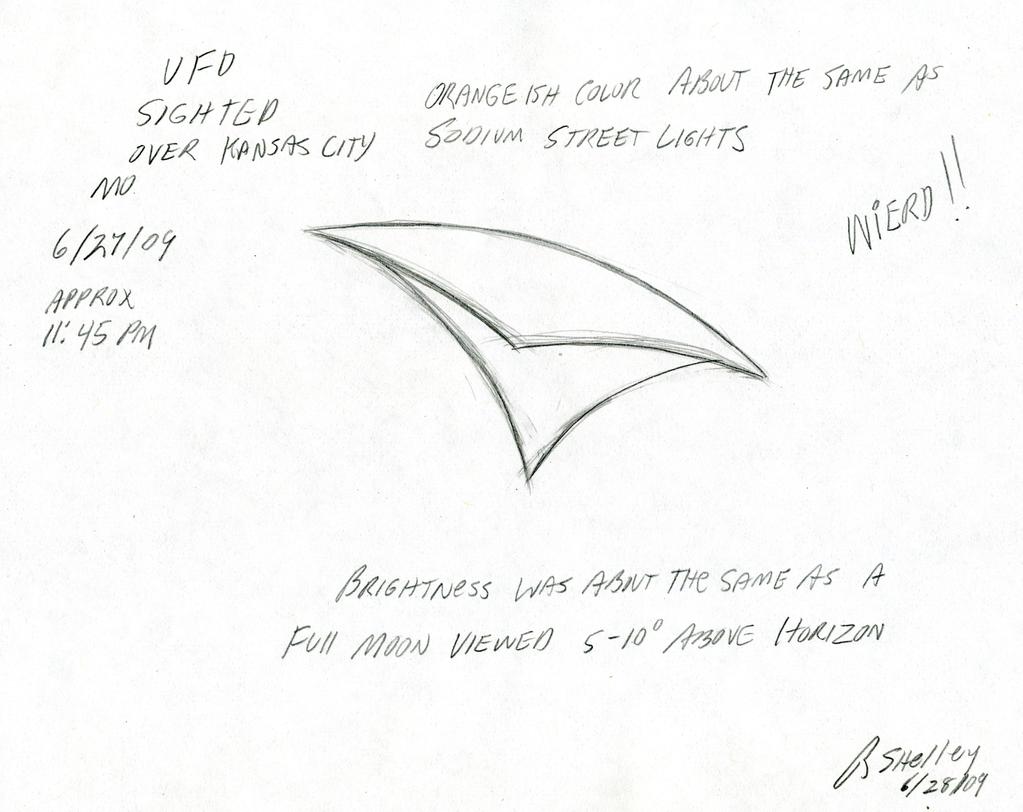 UFO
SIGHTED
OVER KANSAS CITY
MO.
6/27/09
APPROX
11:45 PM
ORANGEISH COLOR ABOUT THE SAME AS
SODIUM STREET LIGHTS
WIERD!!
BRIGHTNESS WAS ABOUT THE SAME AS A
FULL MOON VIEWED 5-10° ABOVE HORIZON
B Shelley
6/28/09